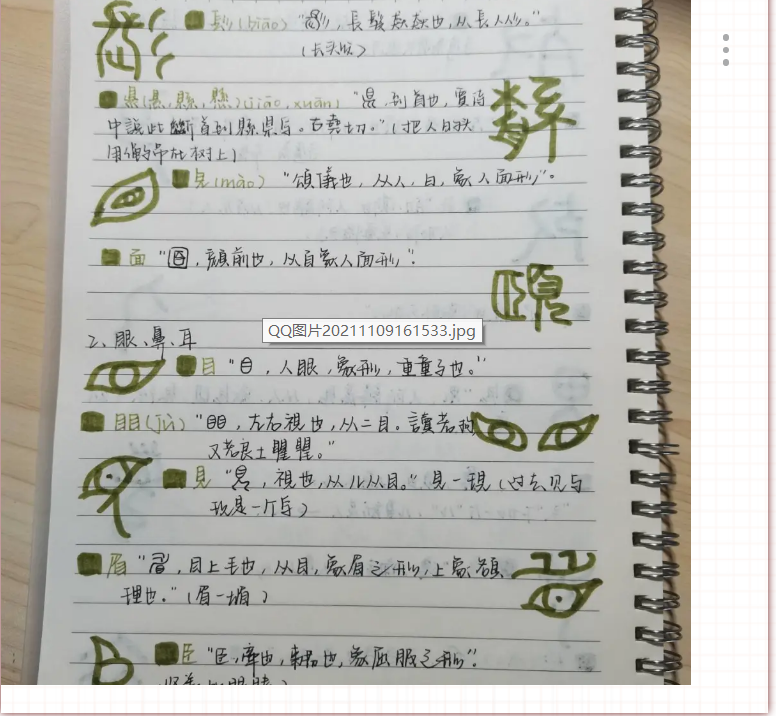 髟(biāo) "髟,長髮猋猋也,从長人彡。"
(長头发)
県(県,縣,懸)(jiāo,xuān) "県,到首也,賈侍
中說此斷首到縣県字。古堯切。"(把人的头
用绳吊在树上)
皃(mào) "頌儀也,从人,白,象人面形"。
面 "面,顏前也,从𦣻象人面形"。
二、眼、鼻、耳
QQ图片20211109161533.jpg
目 "目,人眼,象形,重童子也。"
䀠(jù) "䀠,左右視也,从二目。讀若拘
又若良士瞿瞿。"
見 "見,視也,从儿从目。"見-現(过去见与
现是一个字)
眉 "眉,目上毛也,从目,象眉之形,上象頟
理也。"(眉-媚)
臣 "臣,牽也,事君也,象屈服之形"。